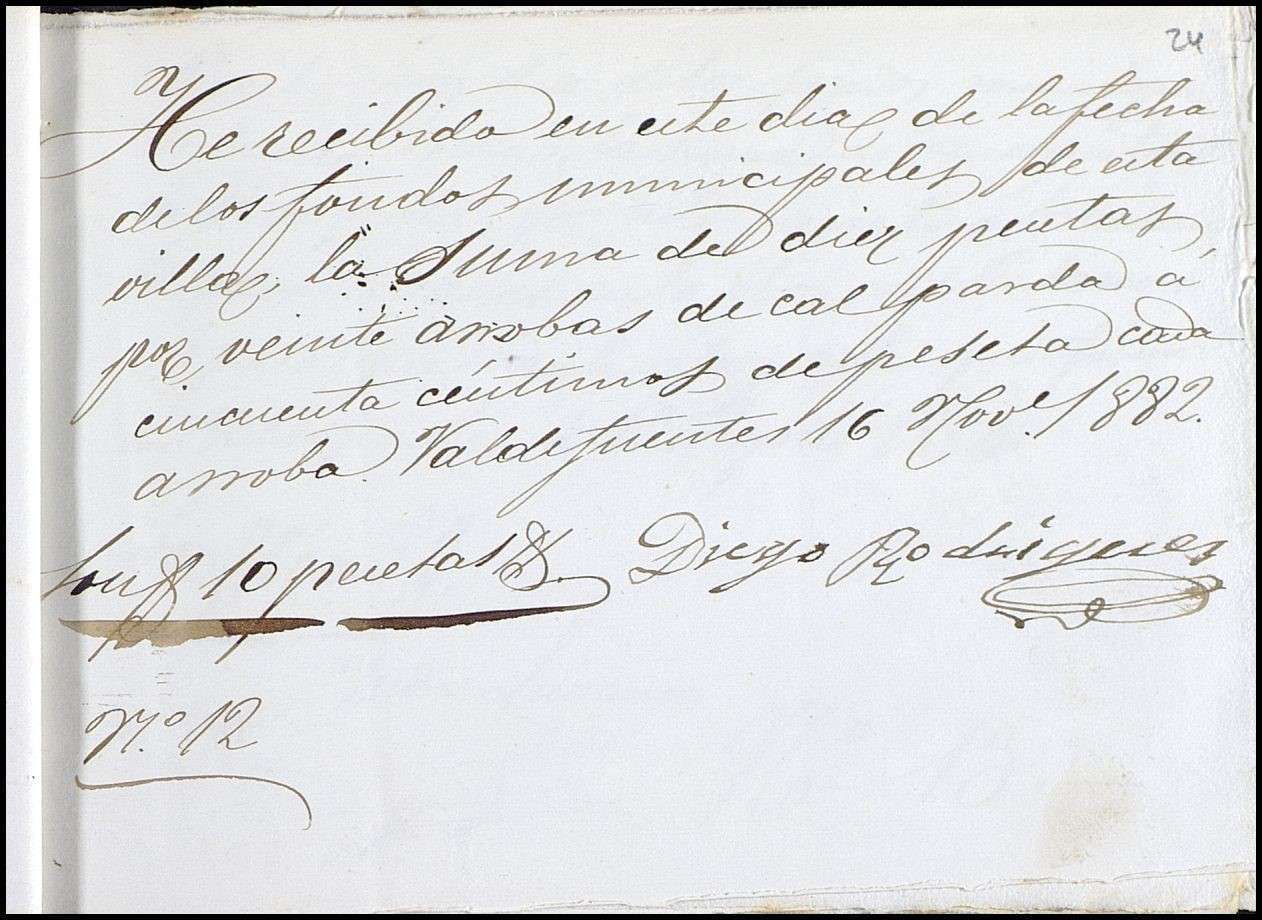 24
He recibido en este dia de la fecha
de los fondos municipales de esta
villa, la suma de diez pesetas,
por veinte arrobas de cal parda á
cincuenta céntimos de peseta cada
arroba. Valdefuentes 16 Nov.e 1882.
Son 10 pesetas
Diego Rodríguez
N.o 12